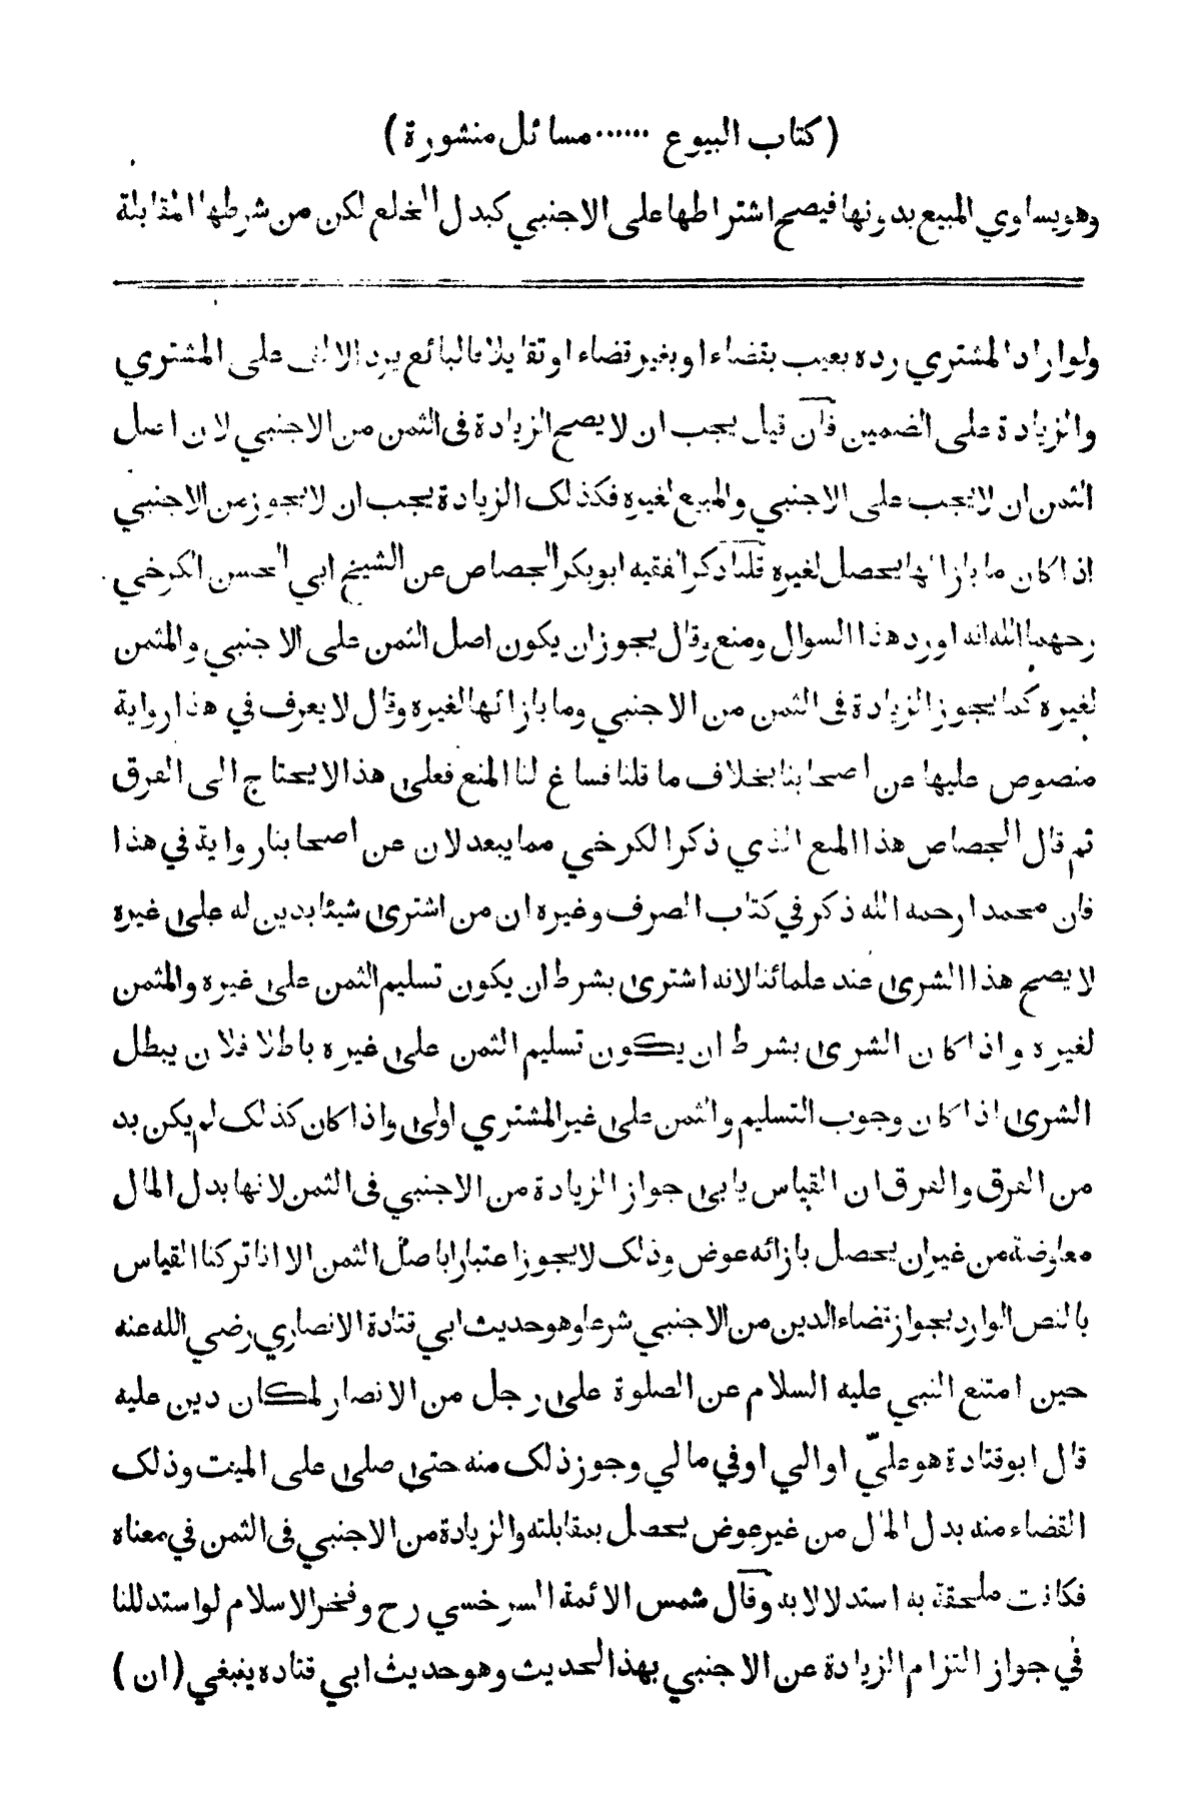 (كتاب البيوع ...... مسائل منشورة)
وهو يساوي المبيع بدونها فيصح اشتراطها على الاجنبي كبدل الخلع لكن من شرطها المقابلة
ولو اراد المشتري رده بعيب بقضاء او بغير قضاء او تقايلا فالبائع يرد الالف على المشتري
والزيادة على الضمين فان قيل يجب ان لا يصح الزيادة فى الثمن من الاجنبي لان اصل
الثمن ان لا يجب على الاجنبي والمبيع لغيره فكذلك الزيادة يجب ان لا يجوز من الاجنبي
اذا كان ما بازائها يحصل لغيره قلنا ذكر الفقيه ابو بكر الجصاص عن الشيخ ابي الحسن الكرخي
رحهما الله انه اورد هذا السوال ومنع وقال يجوز ان يكون اصل الثمن على الاجنبي والمثمن
لغيره كما يجوز الزيادة فى الثمن من الاجنبي وما بازائها لغيره وقال لا يعرف في هذا رواية
منصوص عليها عن اصحابنا بخلاف ما قلنا فساغ لنا المنع فعلى هذا لا يحتاج الى الفرق
ثم قال الجصاص هذا المنع الذي ذكر الكرخي مما يبعد لان عن اصحابنا رواية في هذا
فان محمدا رحمه الله ذكر في كتاب الصرف وغيره ان من اشترى شيئا بدين له على غيره
لا يصح هذا الشرى عند علمائنا لانه اشترى بشرط ان يكون تسليم الثمن على غيره والمثمن
لغيره واذا كان الشرى بشرط ان يكون تسليم الثمن على غيره باطلا فلان يبطل
الشرى اذا كان وجوب التسليم والثمن على غير المشتري اولى واذا كان كذلك لم يكن بد
من الفرق والفرق ان القياس يابى جواز الزيادة من الاجنبي فى الثمن لانها بدل المال
معاوضة من غير ان يحصل بازائه عوض وذلك لا يجوز اعتبارا باصل الثمن الا انا تركنا القياس
بالنص الوارد بجواز قضاء الدين من الاجنبي شرعا وهو حديث ابي قتادة الانصاري رضي الله عنه
حين امتنع النبي عليه السلام عن الصلوة على رجل من الانصار لمكان دين عليه
قال ابو قتادة هو عليّ او الي اوفي مالي وجوز ذلك منه حتى صلى على الميت وذلك
القضاء منه بدل المال من غير عوض يحصل بمقابلته والزيادة من الاجنبي فى الثمن في معناه
فكانت ملحقة به استدلالا به وقال شمس الائمة السرخسي رح وفخر الاسلام لو استدللنا
في جواز التزام الزيادة عن الاجنبي بهذا الحديث وهو حديث ابي قتاده ينبغي (ان)